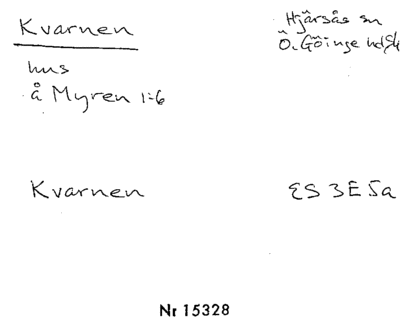 Kvarnen
Hjärsås sn
Ö. Göinge hd Sk
hus
å Myren 1:6
Kvarnen
ES 3E 5a
Nr 15328